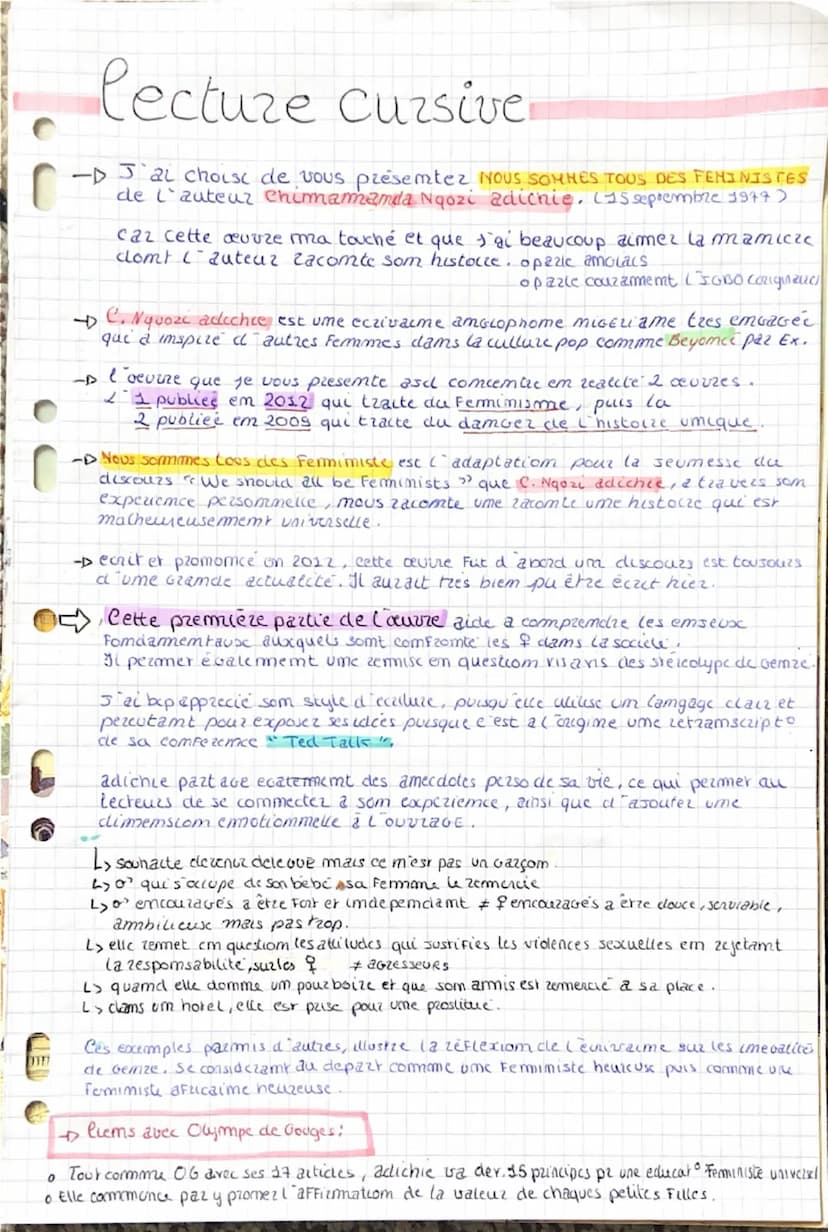 Lecture cursive
→ J'ai choisi de vous présenter NOUS SOMMES TOUS DES FEMINISTES
de l'auteur Chimamanda Ngozi adichie. (15 septembre 1977)
car cette œuvre ma touché et que j'ai beaucoup aimer la maniere
dont l'auteur raconte son histoire. o parle anglais
o parle couramment l'IGBO (originaire)
→ C. Ngozi adichie est une ecrivaine anglophone nigériane tres engagée
qui a inspiré d'autres femmes dans la culture pop comme Beyoncé par Ex.
→ l'oeuvre que je vous presente concentre en realité 2 œuvres.
L' 1 publiée en 2012 qui traite du Feminisme, puis la
2 publiée en 2009 qui traite du danger de l'histoire unique.
→ Nous sommes tous des feministe est l'adaptation pour la jeunesse du
discours "We should all be Feminists" que C. Ngozi adichie, a travers son
experience personnelle, nous raconte une raconte une histoire qui est
malheureusement universelle.
→ ecrit et prononcé en 2012, cette œuvre fut d'abord un discours est toujours
d'une grande actualité. Il aurait très bien pu être écrit hier.
⇨ Cette première partie de l'œuvre aide a comprendre les enjeux
fondamentaux auxquels sont confronté les ♀ dans la société.
Il permet également une remise en question vis avis des stéréotype de genre.
J'ai bcp apprecié son style d'ecriture, puisqu'elle utilise un langage clair et
percutant pour exposer ses idées puisque c'est a l'origine une retranscript°
de sa conference "Ted Talk".
adichie partage egalement des anecdotes perso de sa vie, ce qui permet au
lecteurs de se connecter a son experience, ainsi que d'ajouter une
dimension emotionnelle à l'ouvrage.
↳ souhaite devenir delegué mais ce n'est pas un garçon
↳ ♂ qui s'occupe de son bébé sa femme le remercie
↳ ♂ encouragés a être fort et independant ≠ ♀ encouragés a être douce, serviable,
ambitieuse mais pas trop.
↳ elle remet en question les attitudes qui justifies les violences sexuelles en rejetant
la responsabilité sur les ♀ ≠ agresseurs
↳ quand elle donne un pourboire et que son amis est remercié a sa place.
↳ dans un hotel, elle est prise pour une prostitué.
Ces exemples parmis d'autres, illustre la réflexion de l'écrivaine sur les inegalités
de genre. Se considerant au depart comme une Feministe heureuse puis comme une
feministe africaine heureuse.
→ liens avec Olympe de Gouges:
o Tout comme OG avec ses 17 articles, adichie va dev. 15 principes pr une educat° Feministe universel
o Elle commence par y promet l'affirmation de la valeur de chaques petites filles.